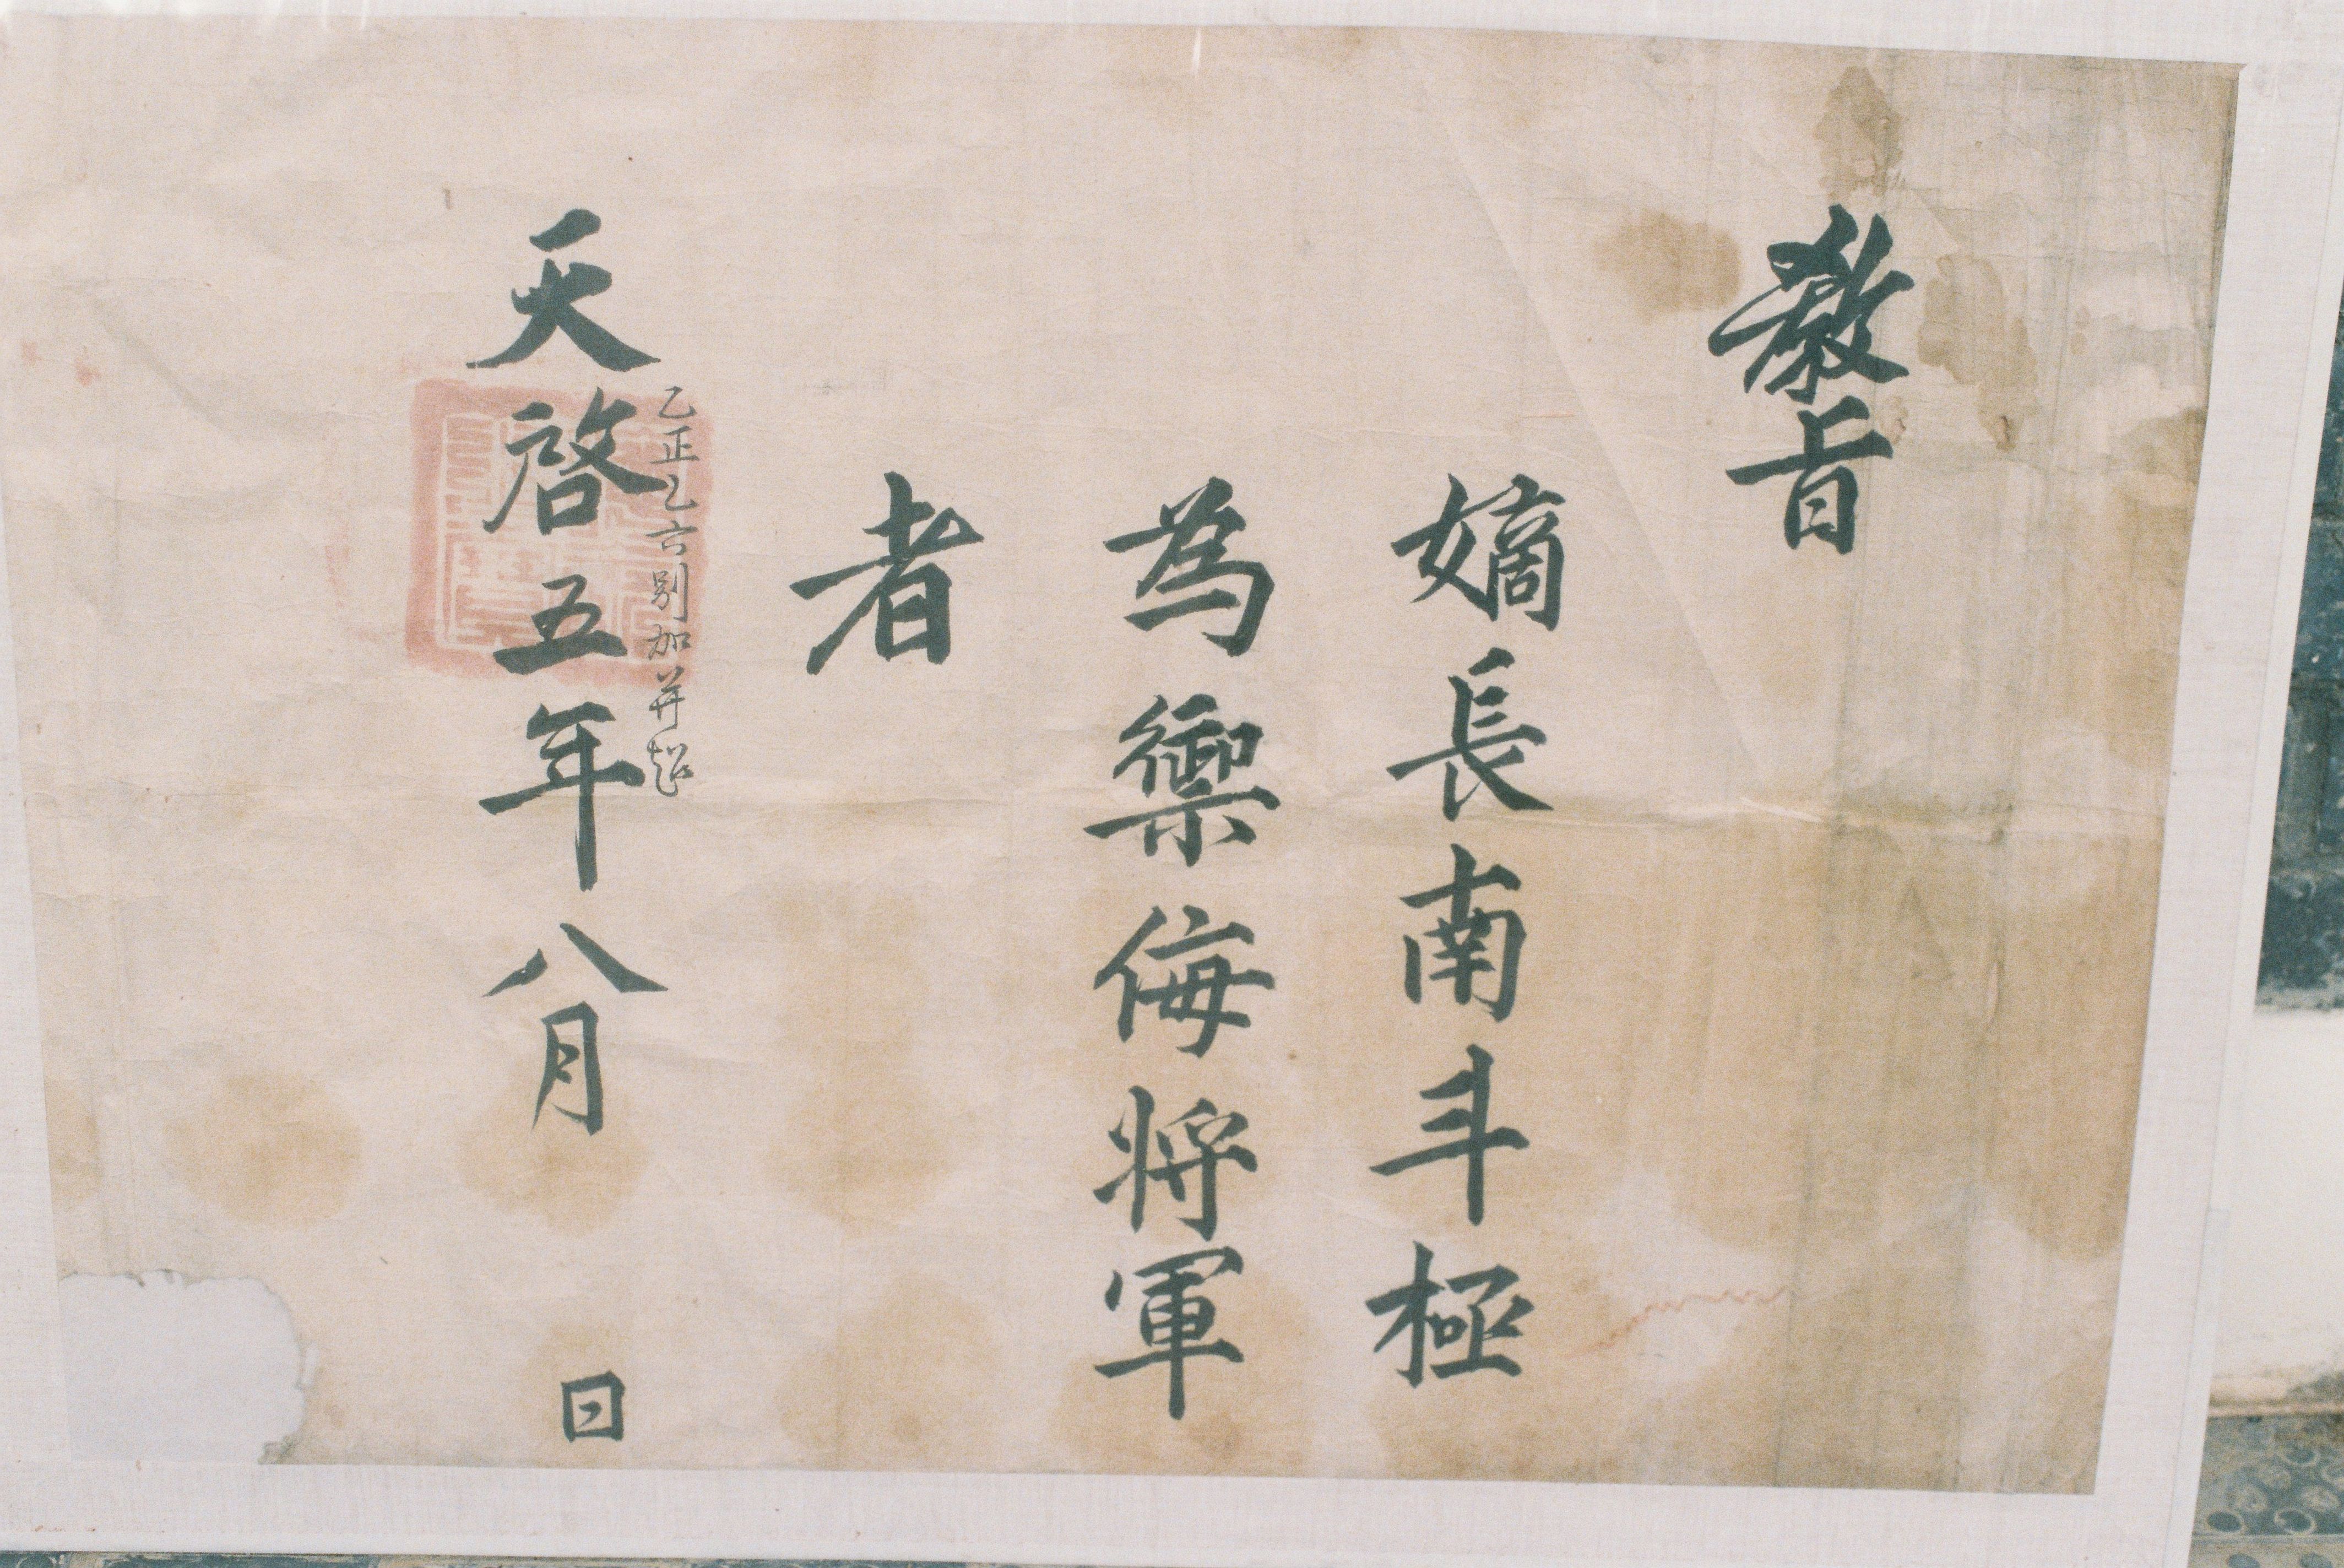 敎旨
嫡長南斗極
為禦侮將軍
者
天啓五年八月　日
乙正乙六別加并超